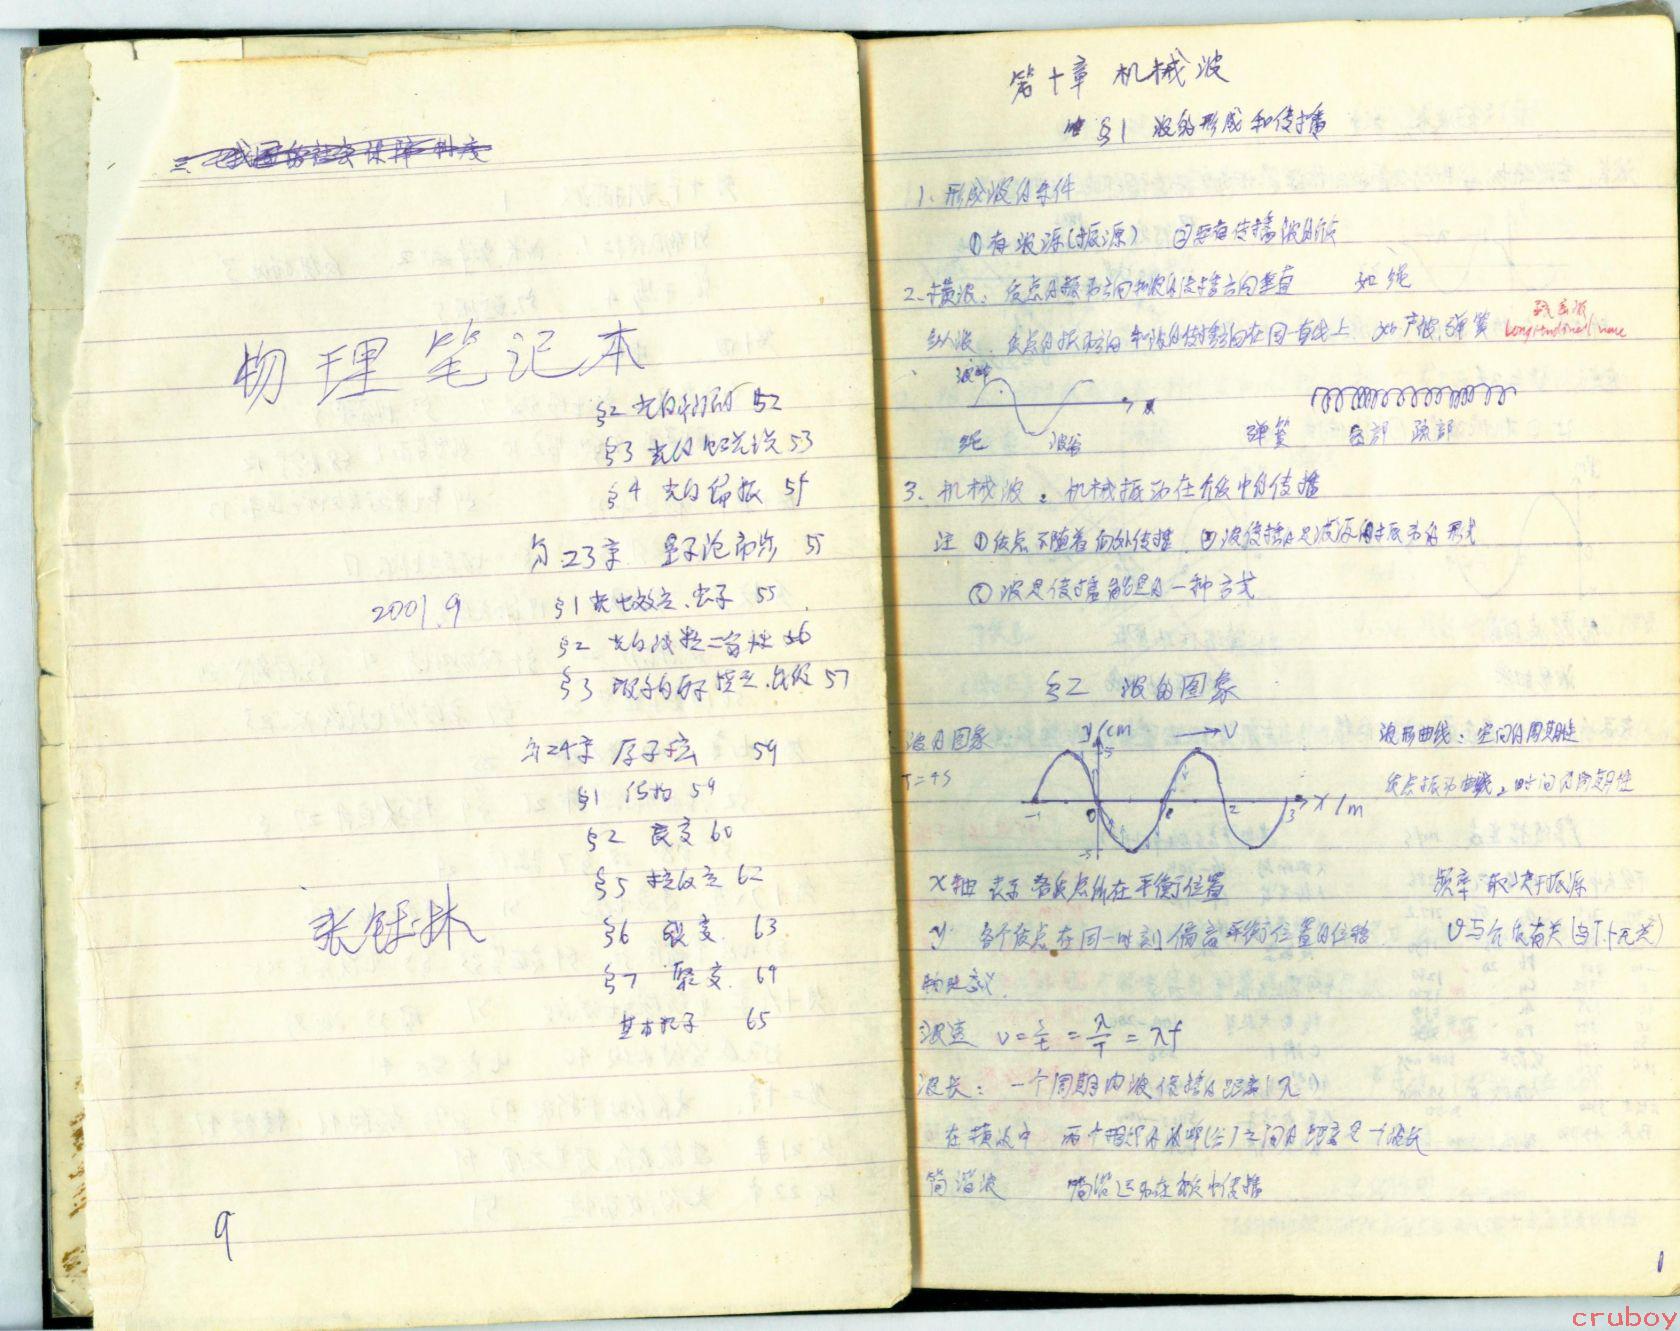 三、我国的社会保障制度
物理笔记本
§2 光的衍射 52
§3 光的电磁说 53
§4 光的偏振 54
第23章 量子论初步 55
2001.9
§1 光电效应、光子 55
§2 光的波粒二象性 56
§3 玻尔的原子模型、能级 57
第24章 原子核 59
§1 结构 59
§2 衰变 60
§5 核反应 62
§6 裂变 63
§7 聚变 64
基本粒子 65
9
第十章 机械波
§1 波的形成和传播
1、形成波的条件
①有波源(振源) ②要有传播波的介质
2、横波：质点的振动方向和波的传播方向垂直 如绳
纵波：质点的振动方向和波的传播方向在同一直线上 如声波、弹簧
Longitudinal wave
波峰 x
绳 波谷 弹簧 密部 疏部
3、机械波：机械振动在介质中的传播
注 ①质点不随着向外传播 ②波传播的是波源的振动的形式
③波是传播能量的一种方式
§2 波的图象
波的图象 y/cm V 波形曲线：空间的周期性
T=4s 质点振动曲线：时间的周期性
5 -1 0 2 3 x/m -5
x轴 表示各质点所在平衡位置 频率取决于振源
y 各个质点在同一时刻偏离平衡位置的位移 v与介质有关(与T.f无关)
物理意义
波速 v=s/t=λ/T=λf
波长：一个周期内波传播的距离(λ)
在横波中 两个相邻的波峰(谷)之间的距离是一个波长
简谐波 简谐运动在介质中传播
1
cruboy